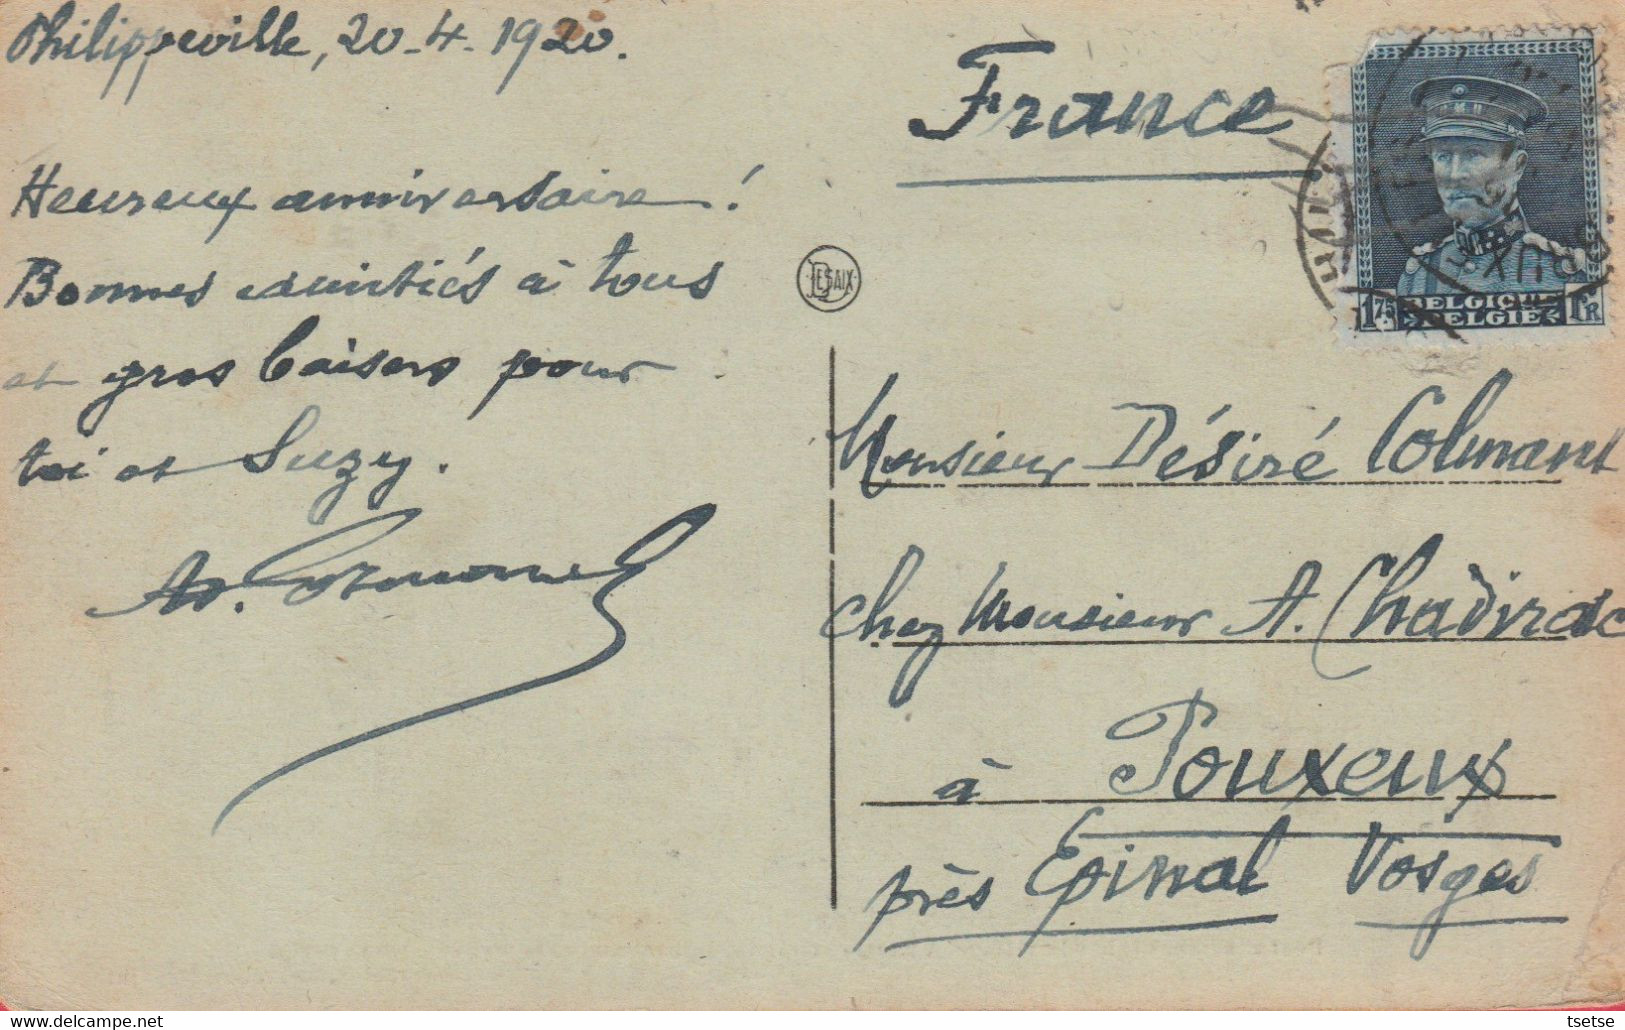 Philippeville, 20-4-1920.
Heureux anniversaire !
Bonnes amitiés à tous
et gros baisers pour
toi et Suzy.
France
DESAIX
BELGIQUE
1 75 BELGIË FR
Monsieur Désiré Colmant
chez Monsieur A. Chadirac
à Pouxeux
près Epinal Vosges
tsetse